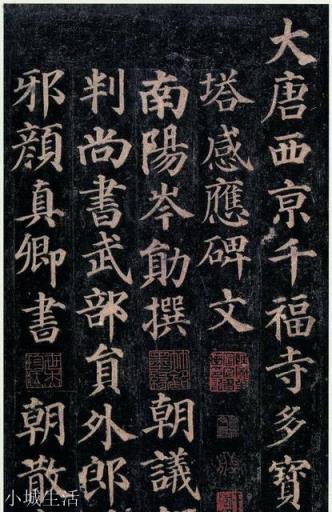 大唐西京千福寺多寶
塔感應碑文
南陽岑勛撰 朝議
判尚書武部員外郎
邪顏真卿書 朝散
小城生活